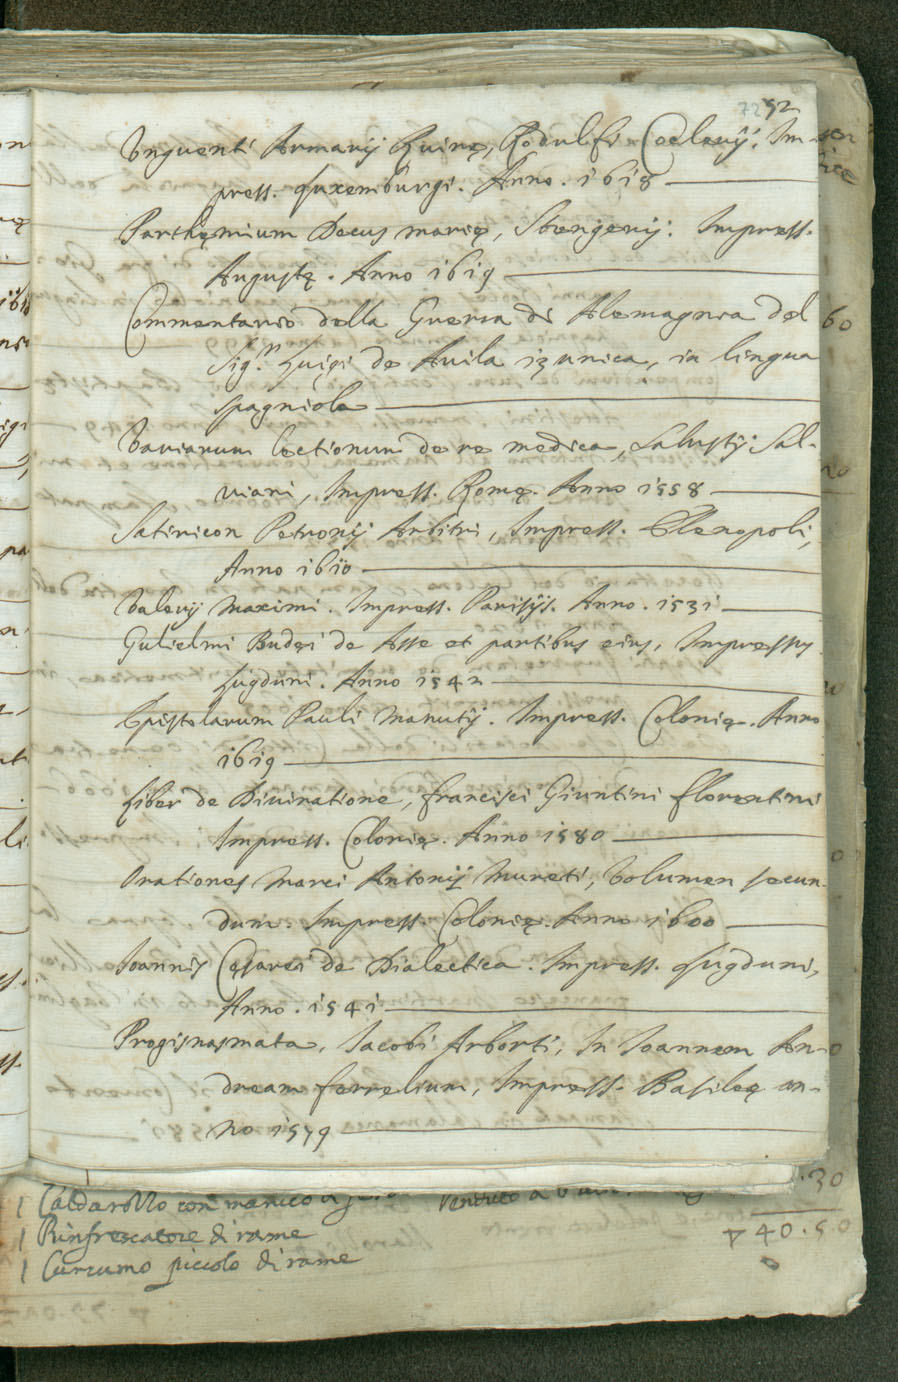 72 92
Vnguenti Armarij Ruinę, Rodulfi Coclenij. Im-
press. Luxemburgi. Anno. 1618
Parthęnium Decus marię, Stengenij. Impress.
Augustę. Anno 1619
Commentario della Guerra di Alemagna del
Sig.r Luigi de Auila izunica, in lingua
spagniola
Variarum lectionum de re medica, Salustij Sal-
uiani, Impress. Romę. Anno 1558
Satiricon Petronij Arbitri, Impress. Elenopoli,
Anno 1610
Valerij Maximi. Impress. Parisijs. Anno. 1531
Gulielmi Budęi de Asse et partibus eius, Impressus
Lugduni. Anno 1542
Epistolarum Pauli Manutij. Impress. Colonię. Anno
1619
Liber de Diuinatione, francisci Giuntini florentini
Impress. Colonię. Anno 1580
Orationes Marci Antonij Mureti, Volumen secun-
dum. Impress. Colonię. Anno 1600
Ioannis Cęsarei de Dialectica. Impress. Lugduni,
Anno. 1541
Progisnasmata, Iacobi Arborti, In Ioannem An-
dream ferrelium, Impress. Basileę an-
no 1579
60
30
1 Caldarozzo con manico
1 Rinfrescatore di rame
40.50
1 Cucumo piccolo di rame